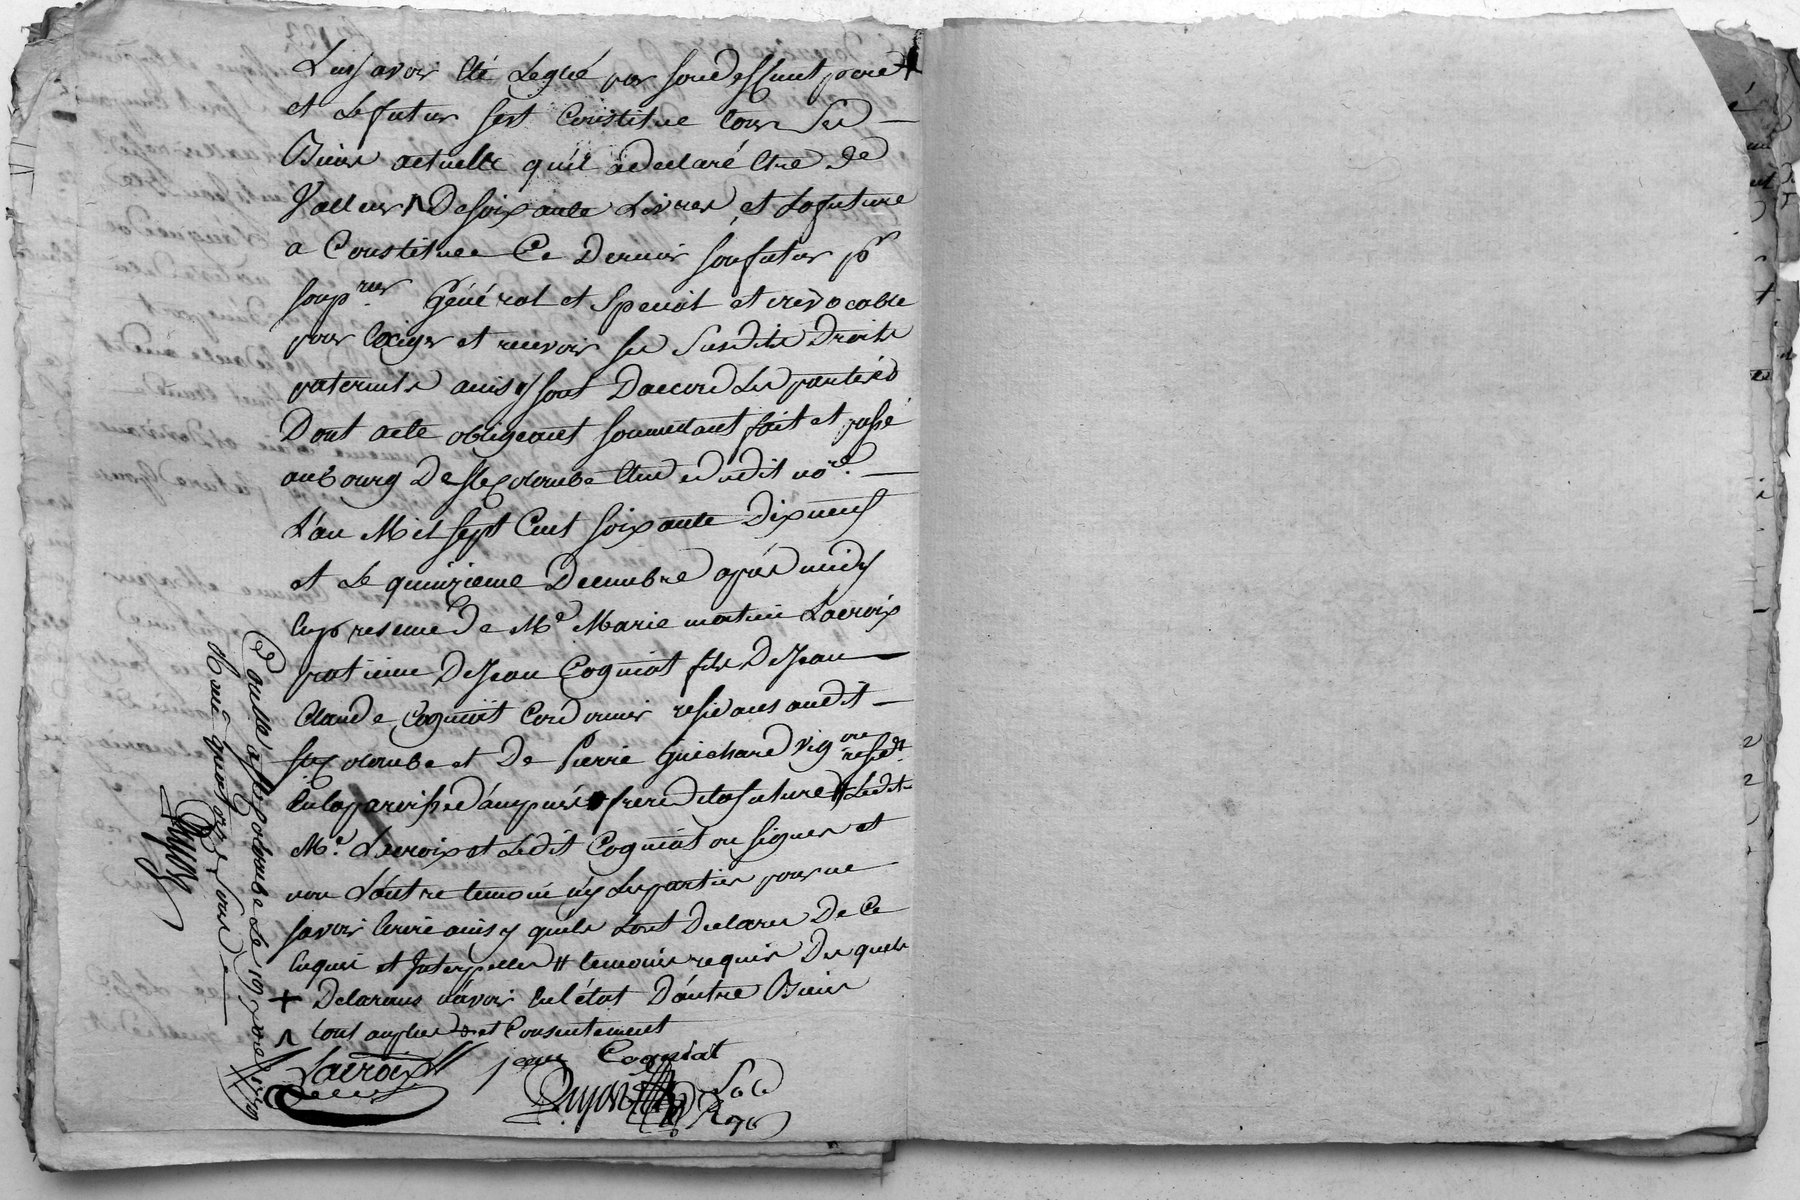 Luy avoir été Legué par son deffunt pere +
et Le futur sest Constitue tous Ses
Biens actuelle quil adeclaré Etre de
Valleur ʌ De soixante Livres et La future
a Constituee Ce Dernier son futur
son pr.eur Général et Special et irevocable
pour Exiger et recevoir ses Susdits Droits
paternels ainsy sont Daccord Les parties
Dont acte obligeant soumettant fait et passé
au Bourg De Ste Colombe Etude dudit no.re
L'an Mil sept Cent soixante Dixneuf
et Le quinzieme Decembre après midy
En presence De Me Marie Lacroix
praticien De Jean Cogniat fils De Jean
Claude Cogniat Cordonnier residans audit
Ste Colombe et De Pierre Guichard Vigneron resid.t
En La paroisse d'ampuis frere de La future Ledit
Me. Lacroix et Ledit Cogniat on signer et
non L'autre temoin ny Les parties pour ne
savoir Ecrire ainsy quils Lont Declare De Ce
Enquis et Interpelles # temoins requis Des quels
+ Declarans n'avoir En L'état D'autre Biens
ʌ tout au plus et Consentement
Lacroix jean Cogniat
Controllé a Ste Colombe Le 19 Xbre 1779
Recu quatorze Sous